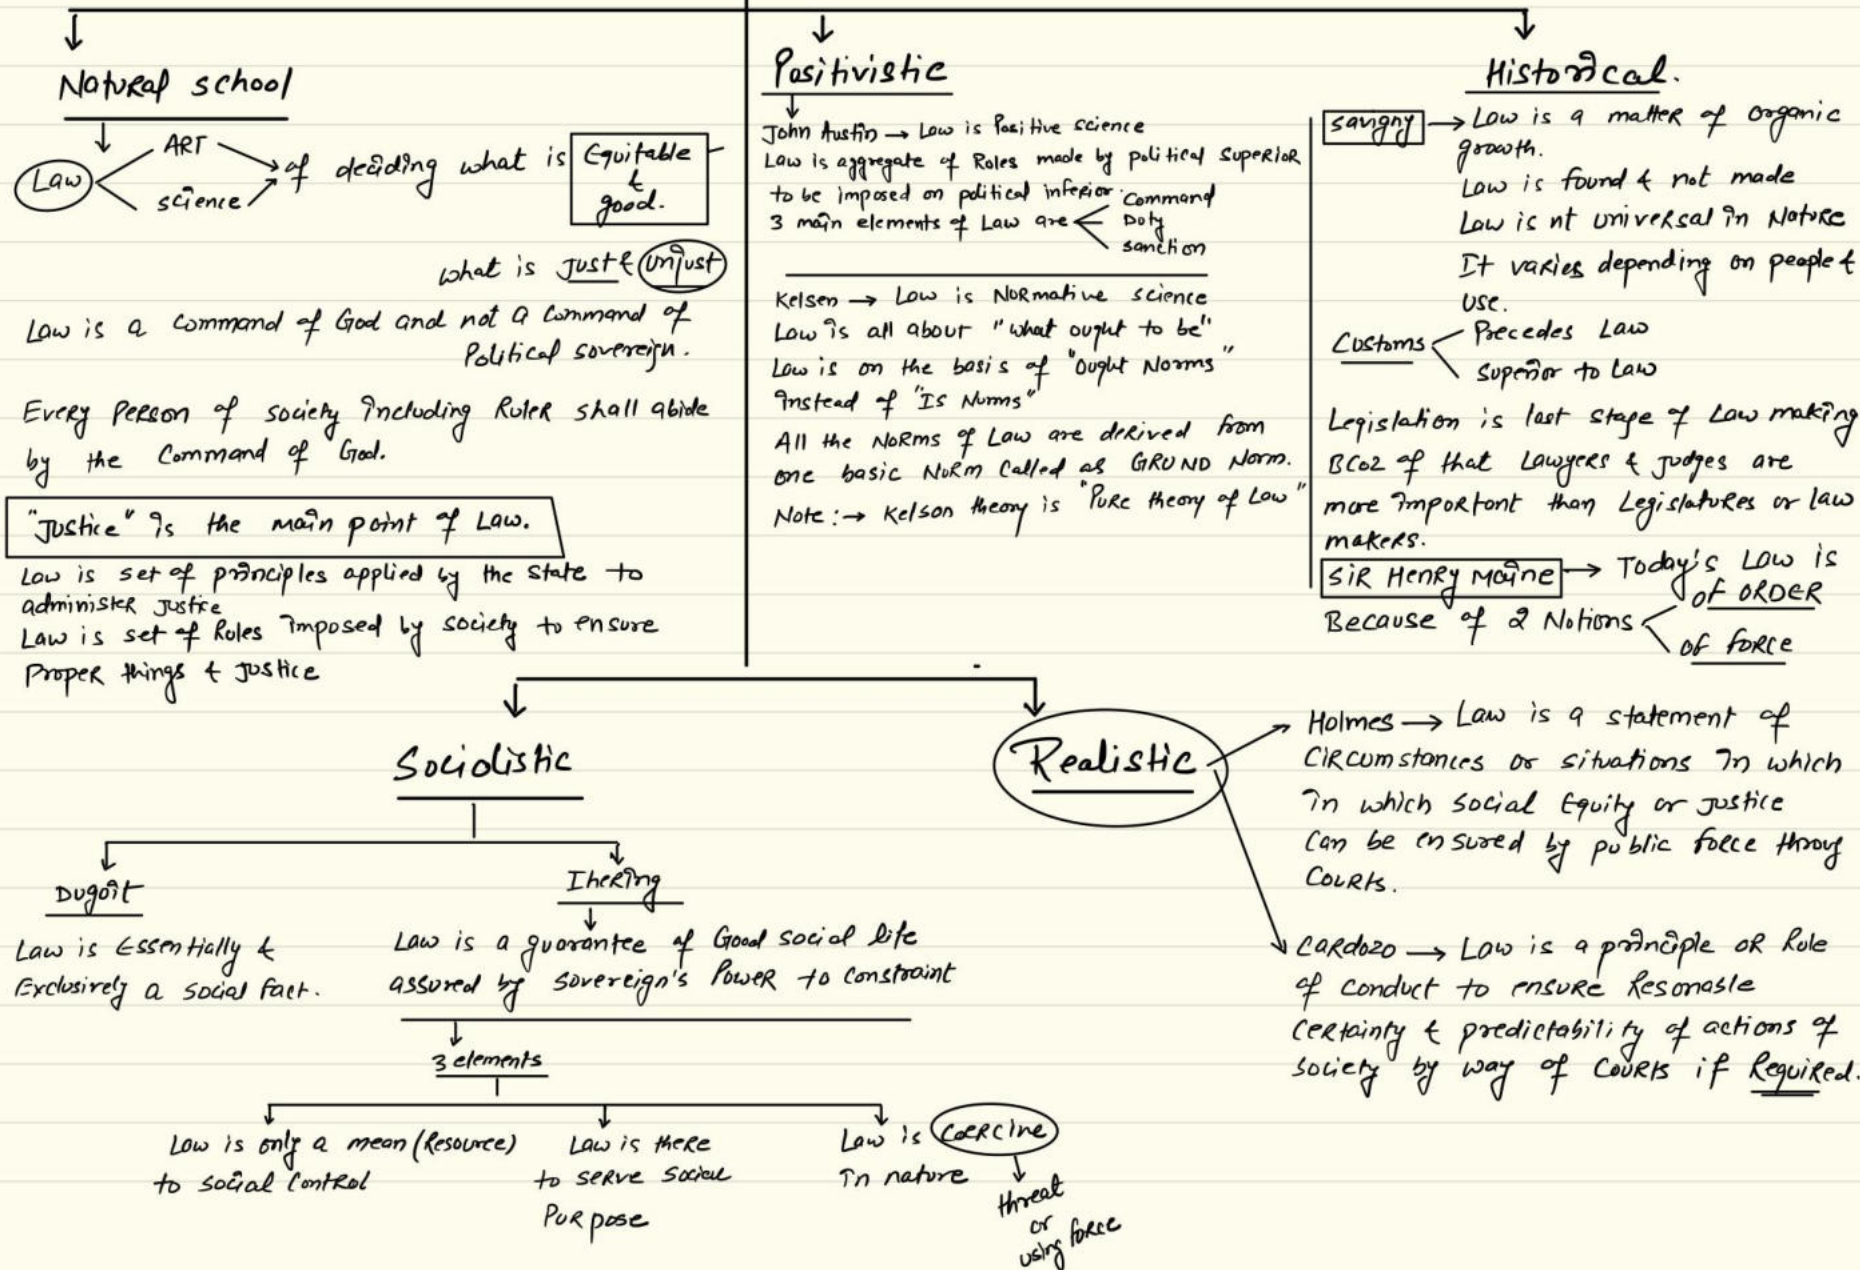 Natural school
Law
ART
science
of deciding what is
Equitable
&
good.
what is Just & unjust
Law is a command of God and not a command of
Political sovereign.
Every Person of society including Ruler shall abide
by the Command of God.
"Justice" is the main point of Law.
Law is set of principles applied by the State to
administer Justice
Law is set of Rules imposed by society to ensure
Proper things & Justice
Positivistic
John Austin → Law is Positive science
Law is aggregate of Roles made by political superior
to be imposed on political inferior.
3 main elements of Law are
Command
Duty
sanction
Kelsen → Law is Normative science
Law is all about "what ought to be"
Law is on the basis of "Ought Norms"
instead of "Is Norms"
All the Norms of Law are derived from
one basic Norm called as GRUND Norm.
Note: → Kelson theory is "Pure theory of Law"
Historical.
savigny → Law is a matter of organic
growth.
Law is found & not made
Law is nt universal in Nature
It varies depending on people &
use.
Customs
Precedes Law
Superior to Law
Legislation is last stage of Law making
BCoz of that Lawyers & Judges are
more important than Legislatures or law
makers.
SIR HENRY Maine → Today's Law is
Because of 2 Notions
of ORDER
of force
Sociolistic
Dugoit
Law is Essentially &
Exclusively a social fact.
Ihering
Law is a guarantee of Good social life
assured by sovereign's Power to constraint
3 elements
Law is only a mean (Resource)
to social Control
Law is there
to serve social
Purpose
Law is Coercine
in nature
threat
or
using force
Realistic
Holmes → Law is a statement of
Circumstances or situations in which
in which social Equity or justice
Can be ensured by public force throug
Courts.
Cardozo → Law is a principle OR Rule
of conduct to ensure Resonable
Certainty & predictability of actions of
society by way of Courts if Required.